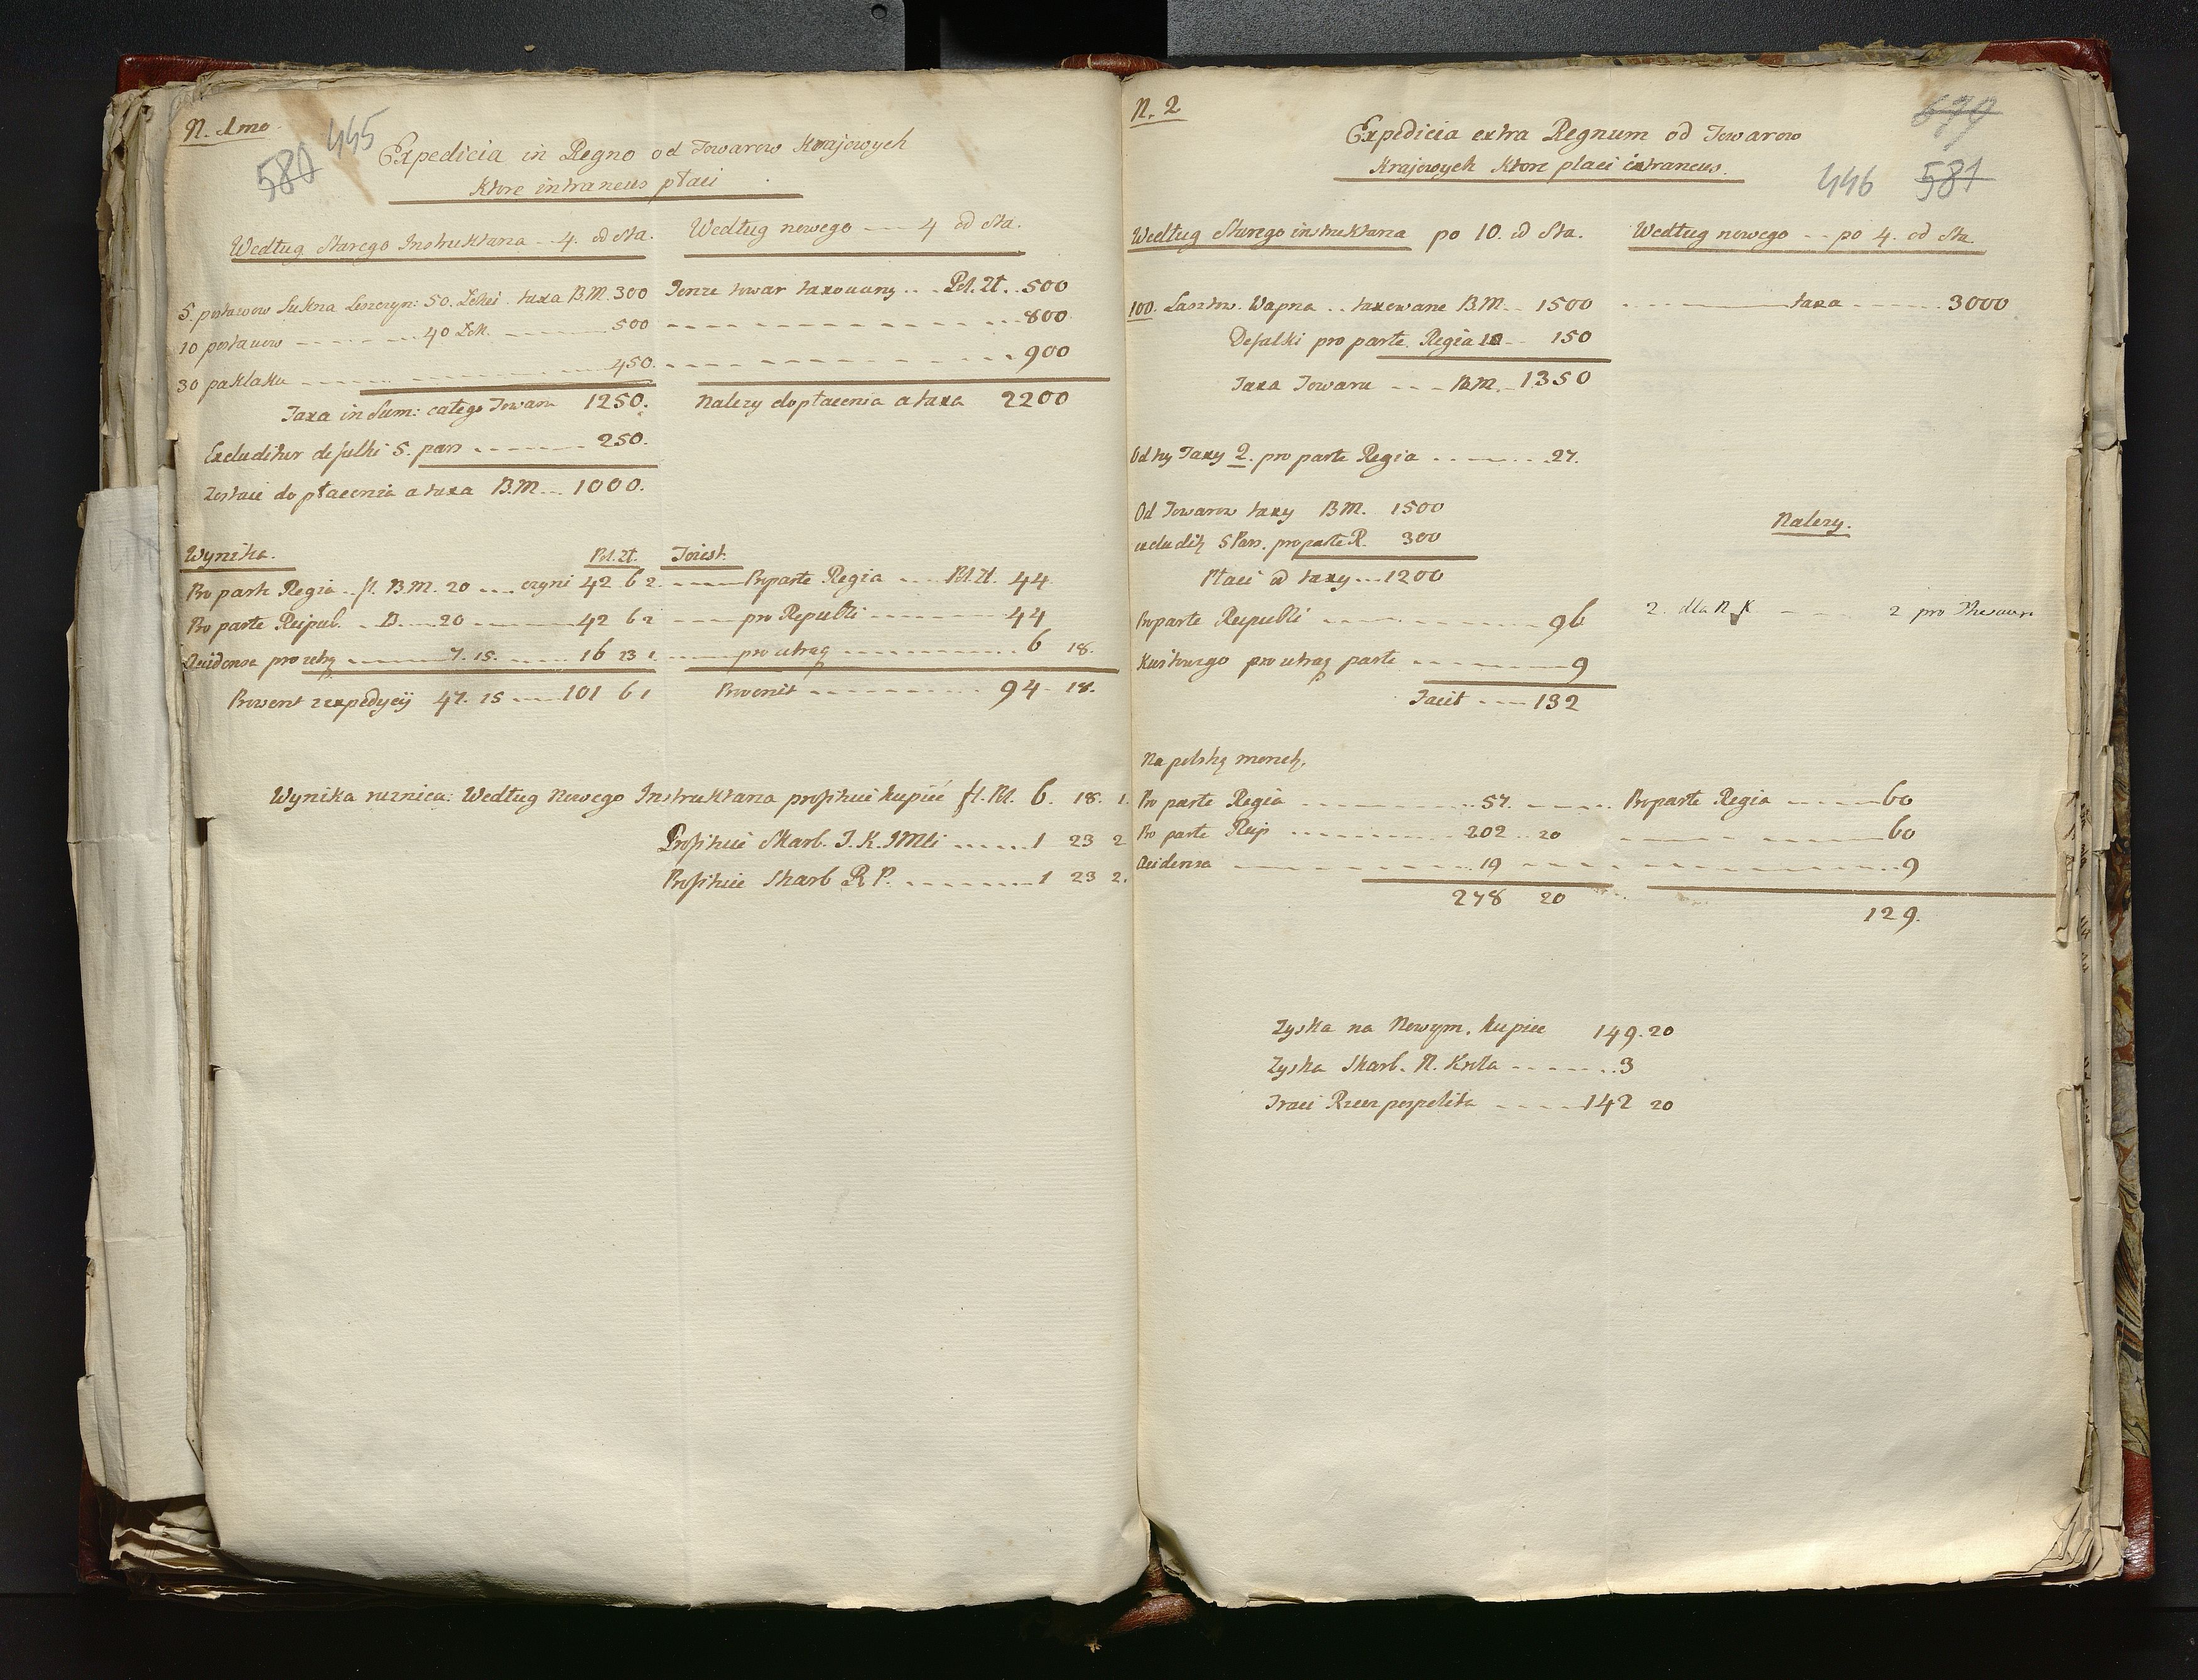 N. 1mo.
580 445
Expedicia in Regno od Towarow Krajowych
Ktore intraneus płaci
Według Starego Instruktarza .. 4. od Sta. Według nowego --- 4 od Sta.
5. postawow Sukna Leszczyn: 50. Łokci . taxa B.M. 300 Tenze towar taxowany ... Pol. Zł. 500
10 postawow 40 Łok. 500 800
30 paklaku 450. 900
Taxa in Sum: całego Towaru 1250. Nalezy do płacenia a taxa 2200
Excluditur defalki 5. pars 250.
Zostaie do płacenia a taxa B.M. 1000.
Wynika. Pol. Zł. Toiest.
Pro parte Regia .. fl. B.M. 20 .... czyni 42 6 2. Pro parte Regia .... Pol. Zł. 44
Pro parte Reipub. D. 20 42 6 2 pro Republi 44
Accidensa pro utrq 7. 15. 16 23 1. pro utraq 6 18.
Prowent z expedycyi 47. 15 101 6 1 Provenit 94 18.
Wynika roznica: Według Nowego Instruktarza profituie kupiec fl. Pol. 6. 18. 1.
Profituie Skarb. J. K. JMći ...... 1 23 2
Profituie Skarb R P. 1 23 2.
N. 2
679
446 581
Expedicia extra Regnum od Towarow
Krajowych Ktore płaci intraneus.
Według Starego instruktarza po 10. od Sta. Według nowego -- po 4. od Sta.
100. Lasztow. Wapna .. taxowane B.M. 1500 taxa 3000
Defalki pro parte Regia 10 150
Taxa Towaru B.M. 1350
Od tey Taxy 2. pro parte Regia 27.
Od Towarow taxy B.M. 1500
excludit 5 Pars. pro parte R. 300
Płaci od taxy ... 1200
Nalezy.
Pro parte Reipubli 96 2. dla N K 2 pro Thesauro
pro utraq parte 9
Facit 132
Na polską monetę.
Pro parte Regia 57. Pro parte Regia 60
Pro parte Reip 202 20 60
Accidensa 19 9
278 20
129.
Zyska na Nowym. kupiec 149. 20
Zyska Skarb. N. Krola 3
Traci Rzeczpospolita 142 20